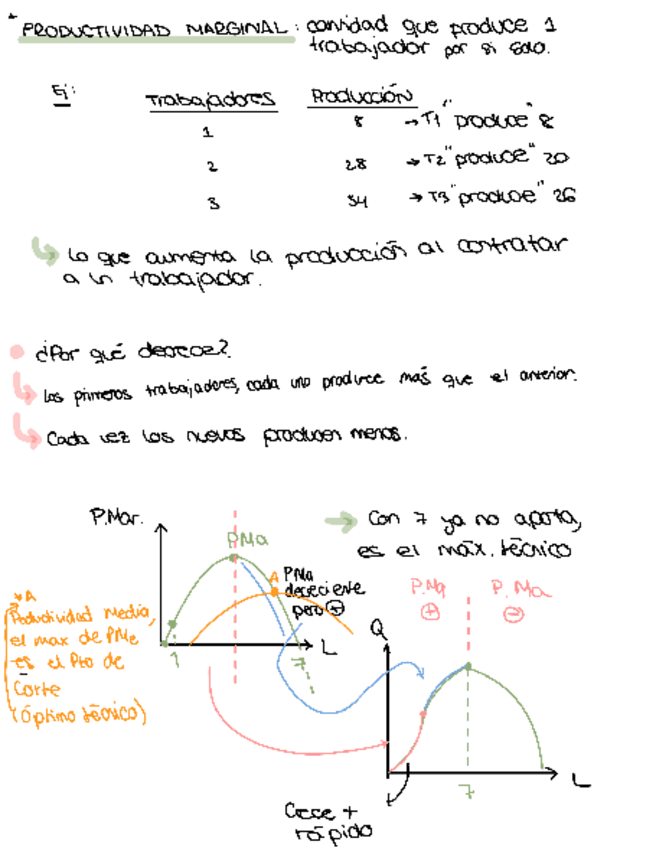 * PRODUCTIVIDAD MARGINAL: cantidad que produce 1
trabajador por si solo.
Ej:
Trabajadores Producción
1 8 → T1 "produce" 8
2 28 → T2 "produce" 20
3 54 → T3 "produce" 26
Lo que aumenta la producción al contratar
a un trabajador.
¿Por qué decrece?
Los primeros trabajadores, cada uno produce más que el anterior.
Cada vez los nuevos producen menos.
P.Mar.
PMa
A
PMa
decreciente
pero +
L
1
7
→ Con 7 ya no aporta,
es el máx. técnico
* A
Productividad Media,
el max de PMe
es el Pto de
Corte
(Óptimo técnico)
P.Ma
+
P.Ma
-
Q
L
7
Crece +
rápido